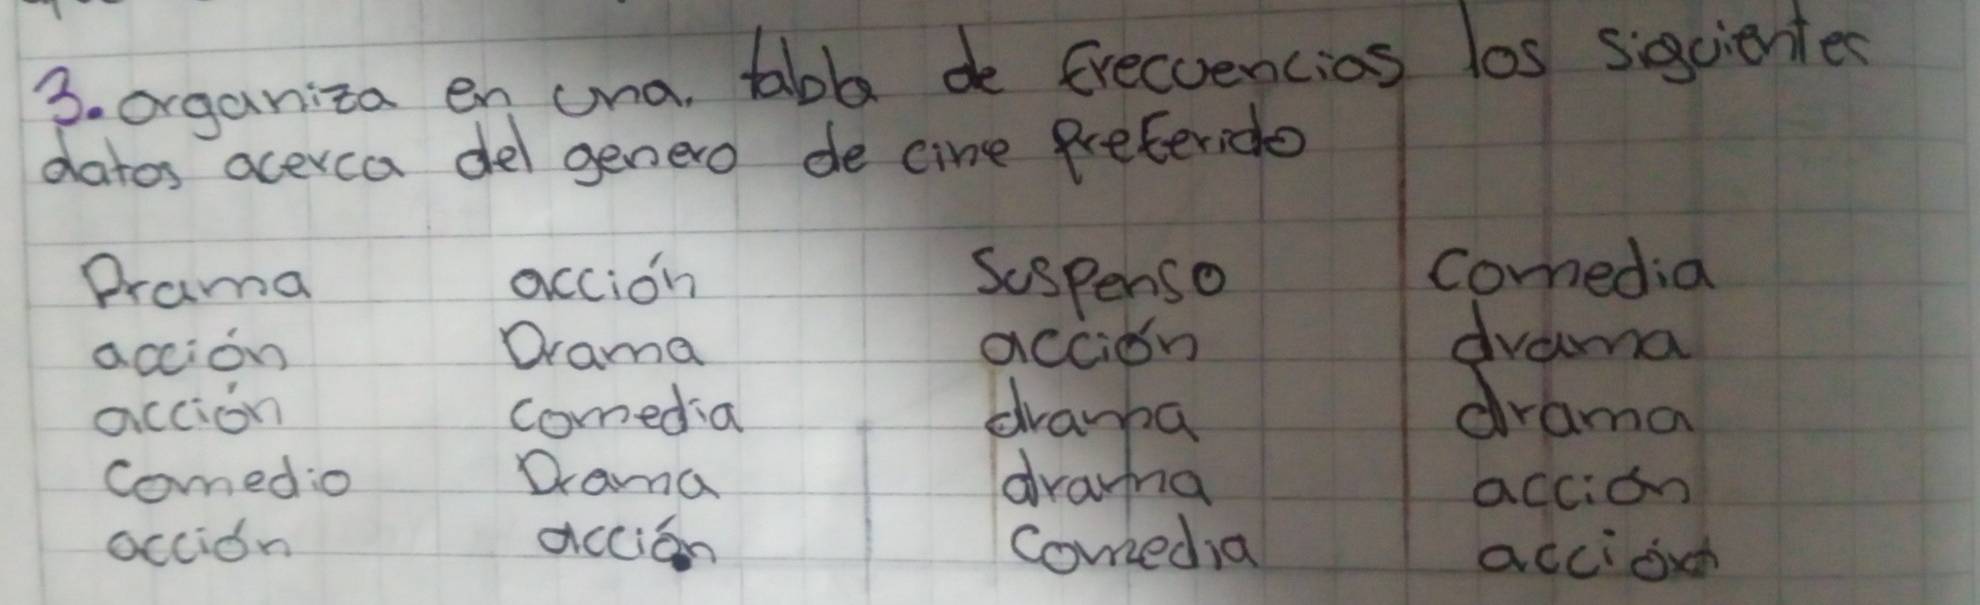 3. organiza en una. tabla de frecuencias los siguientes
datos acerca del genero de cine preferido
Drama acción Suspenso comedia
acción Drama acción drama
acción comedia drama drama
Comedio Drama drama acción
acción acción comedia acción